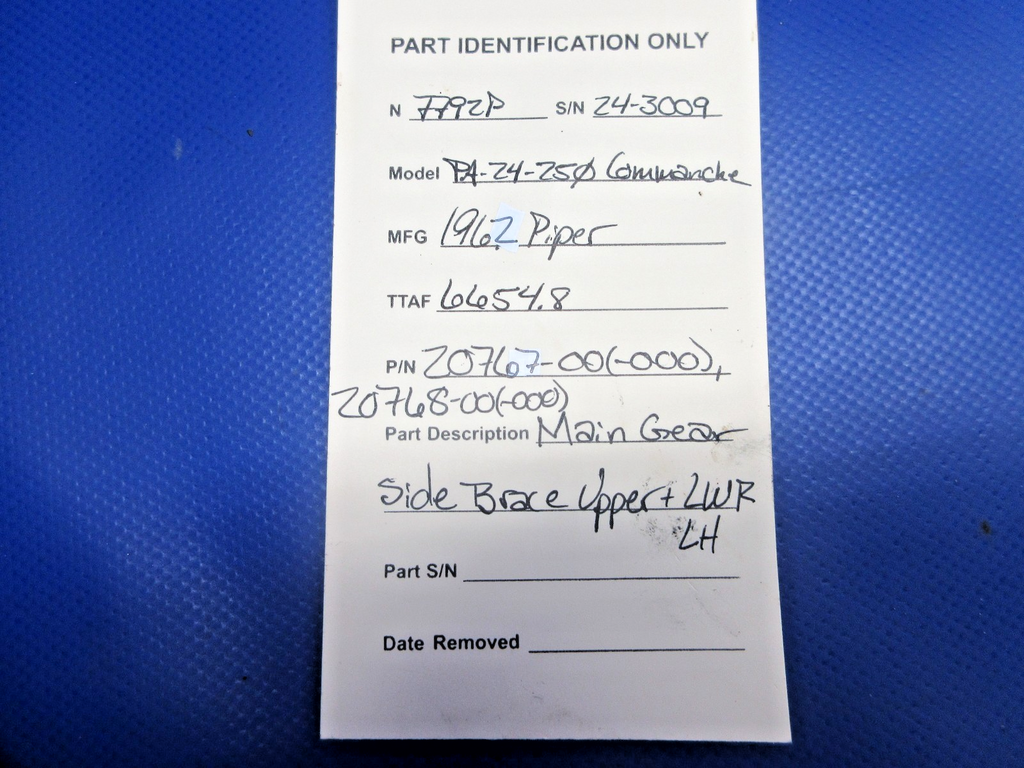 PART IDENTIFICATION ONLY
N 7792P S/N 24-3009
Model PA-24-250 Commanche
MFG 1962 Piper
TTAF 6654.8
P/N 20767-00(-000),
20768-00(-000)
Part Description Main Gear
Side Brace Upper + LWR
LH
Part S/N
Date Removed